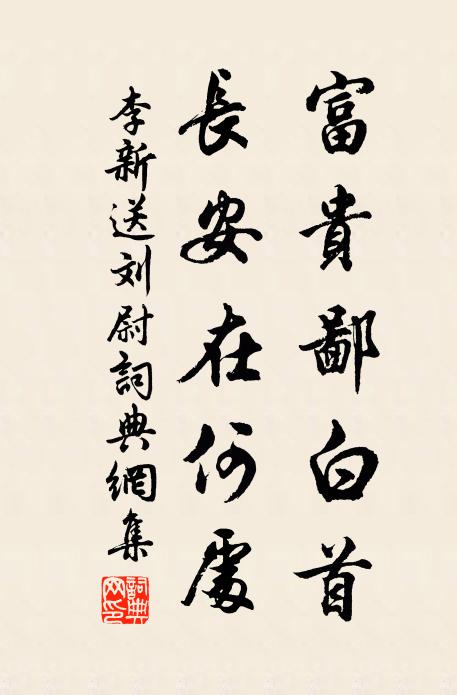 富貴鄙白首
長安在何處
李新送刘尉詞典網集
詞典網印